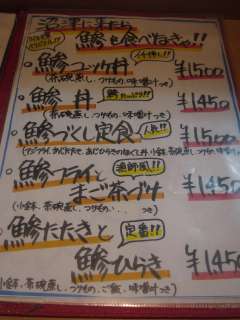 沼津に来たら
鯵を食べなきゃ!!
イチ押し!!
・鯵コロッケ丼 ¥1500
(茶碗蒸し、つけもの、味噌汁つき)
・鯵丼 ¥1450
(茶碗蒸し、つけもの、味噌汁つき)
・鯵づくし定食 人気!! ¥1500
漁師風!!
・鯵フライと
まご茶づけ ¥1450
(小鉢、茶碗蒸し、つけもの つき)
・鯵たたきと 定番!!
鯵ひらき ¥1450
(小鉢、茶碗蒸し、つけもの、ご飯、味噌汁つき)